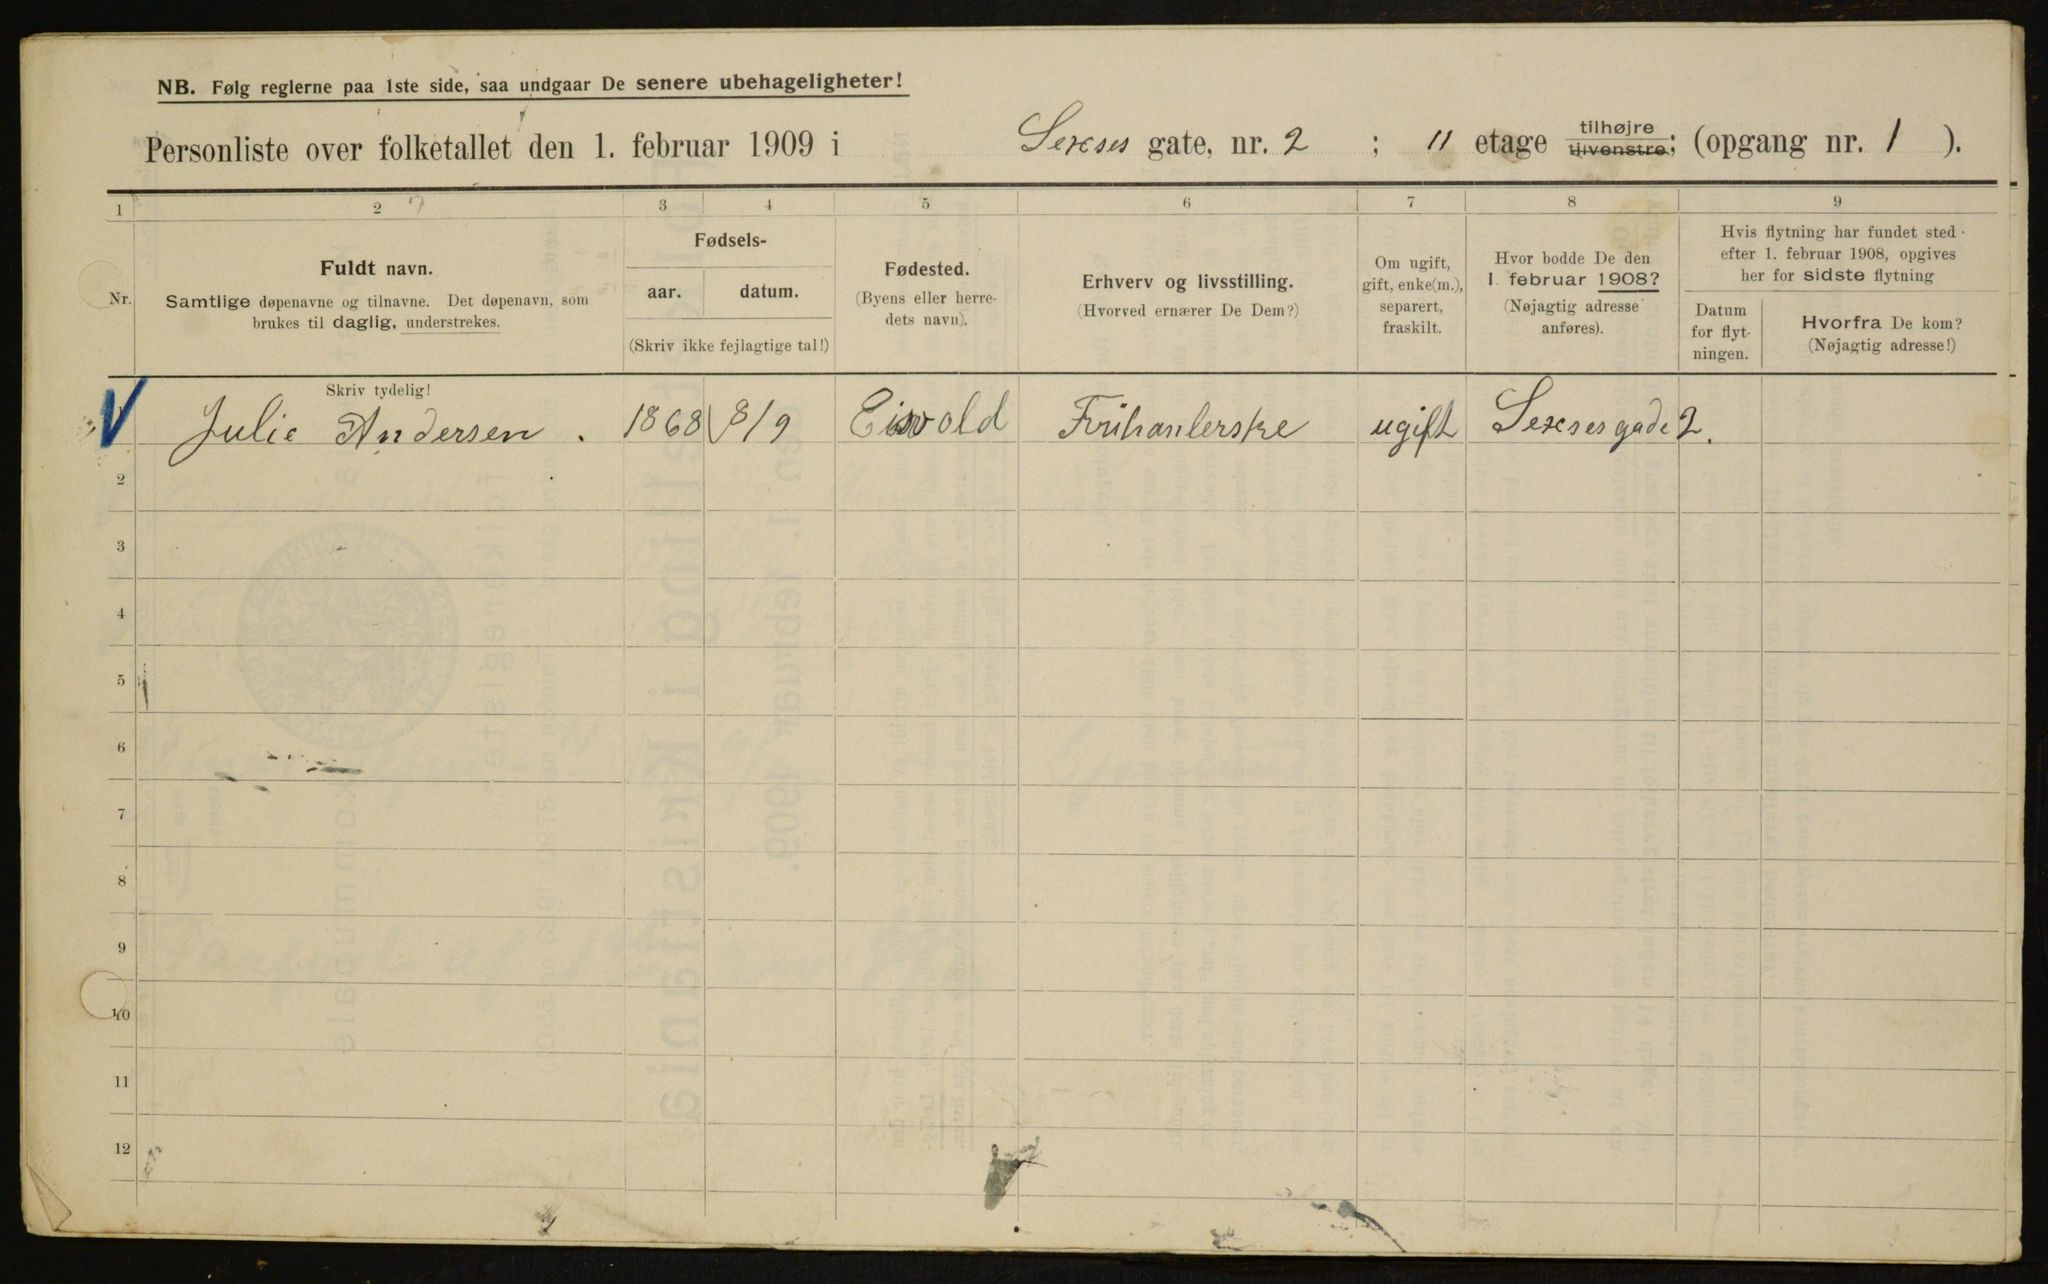 NB. Følg reglerne paa 1ste side, saa undgaar De senere ubehageligheter!
Personliste over folketallet den 1. februar 1909 i Sexses gate, nr. 2 ; 11 etage tilhøjre tilvenstre; (opgang nr. 1 ).
1 2 3 4 5 6 7 8 9
Nr.
Fuldt navn.
Samtlige døpenavne og tilnavne. Det døpenavn, som
brukes til daglig, understrekes.
Fødsels-
aar. datum.
(Skriv ikke fejlagtige tal!)
Fødested.
(Byens eller herre-
dets navn).
Erhverv og livsstilling.
(Hvorved ernærer De Dem?)
Om ugift,
gift, enke(m.),
separert,
fraskilt.
Hvor bodde De den
1. februar 1908?
(Nøjagtig adresse
anføres).
Hvis flytning har fundet sted
efter 1. februar 1908, opgives
her for sidste flytning
Datum
for flyt-
ningen.
Hvorfra De kom?
(Nøjagtig adresse!)
Skriv tydelig!
Julie Andersen. 1868 8/9 Eisvold ugift Sexsesgade 2.
2
3
4
5
6
7
8
9
10
11
12